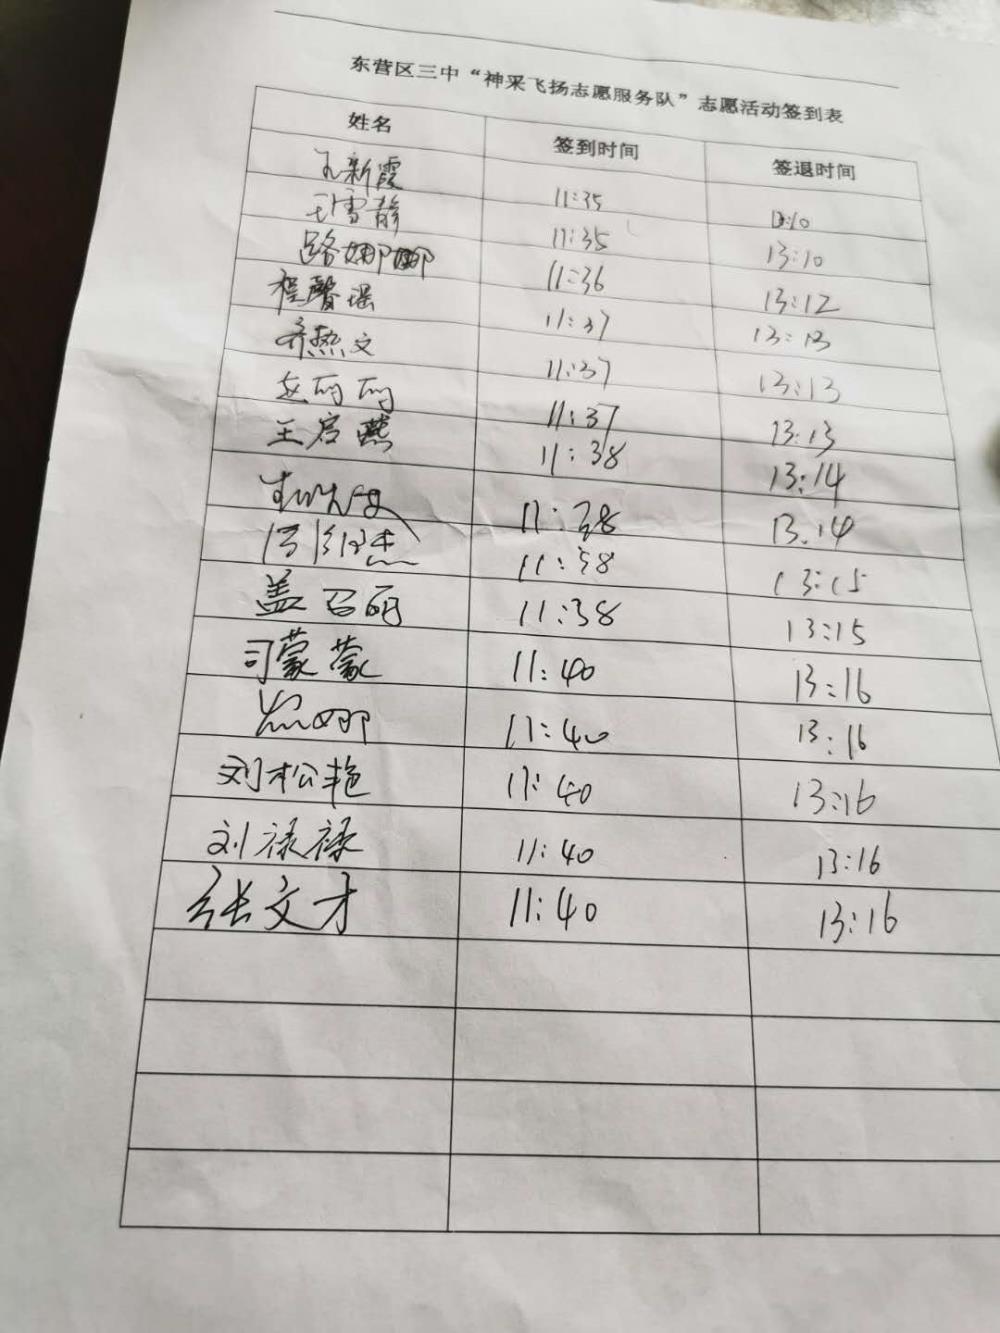 东营区三中“神采飞扬志愿服务队”志愿活动签到表
姓名 签到时间 签退时间
孔新霞 11:35 13:10
雪静 11:35 13:10
路娜娜 11:36 13:12
程馨瑶 11:37 13:13
齐 文 11:37 13:13
11:37 13:13
王启燕 11:38 13:14
11:38 13.14
11:38 13:15
盖召丽 11:38 13:15
司蒙蒙 11:40 13:16
娜 11:40 13:16
刘松艳 11:40 13:16
刘禄禄 11:40 13:16
张文才 11:40 13:16